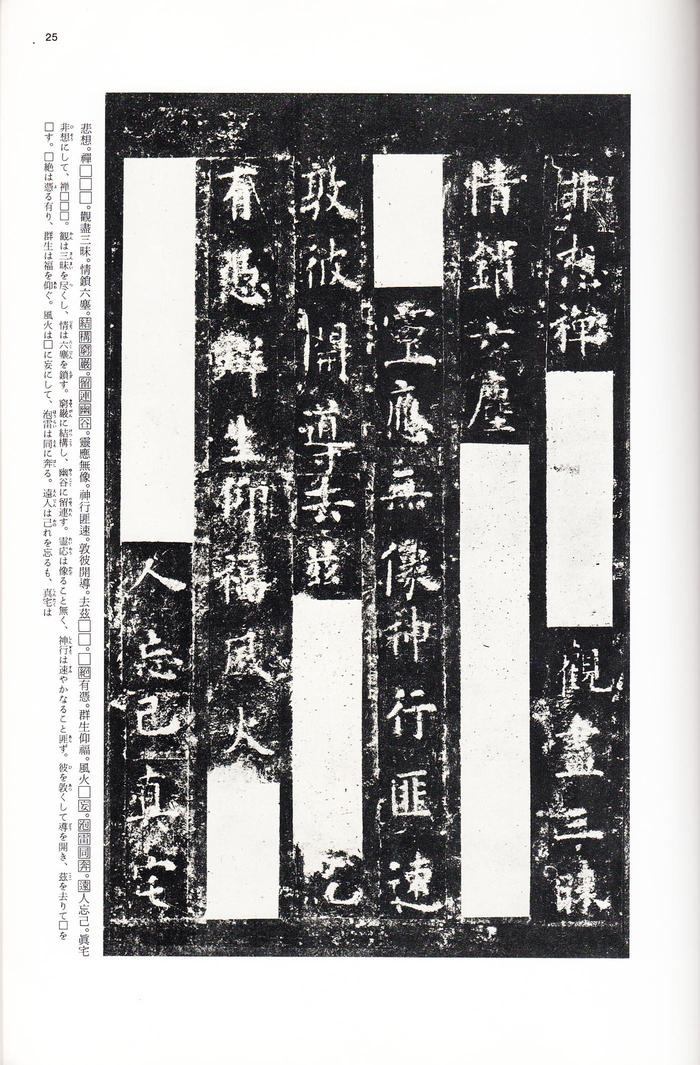 25
非想禅觀盡三昧
情鎖六塵
靈應無像神行匪速
敦彼開導去兹絶
有憑群生仰福風火
人忘己真宅
悲想。禪□□□。觀盡三昧。情鎖六塵。結構窮巖。留連幽谷。靈應無像。神行匪速。敦彼開導。去茲□□。□絕有憑。群生仰福。風火□妄。泡雷同奔。遠人忘己。眞宅
非想にして、禅□□□。観は三昧を尽くし、情は六塵を鎖す。窮巌に結構し、幽谷に留連す。霊応は像ること無く、神行は速やかなること匪ず。彼を敦くして導を開き、茲を去りて□を
□す。□絶は憑る有り、群生は福を仰ぐ。風火は□に妄にして、泡雷は同に奔る。遠人は己れを忘るも、真宅は